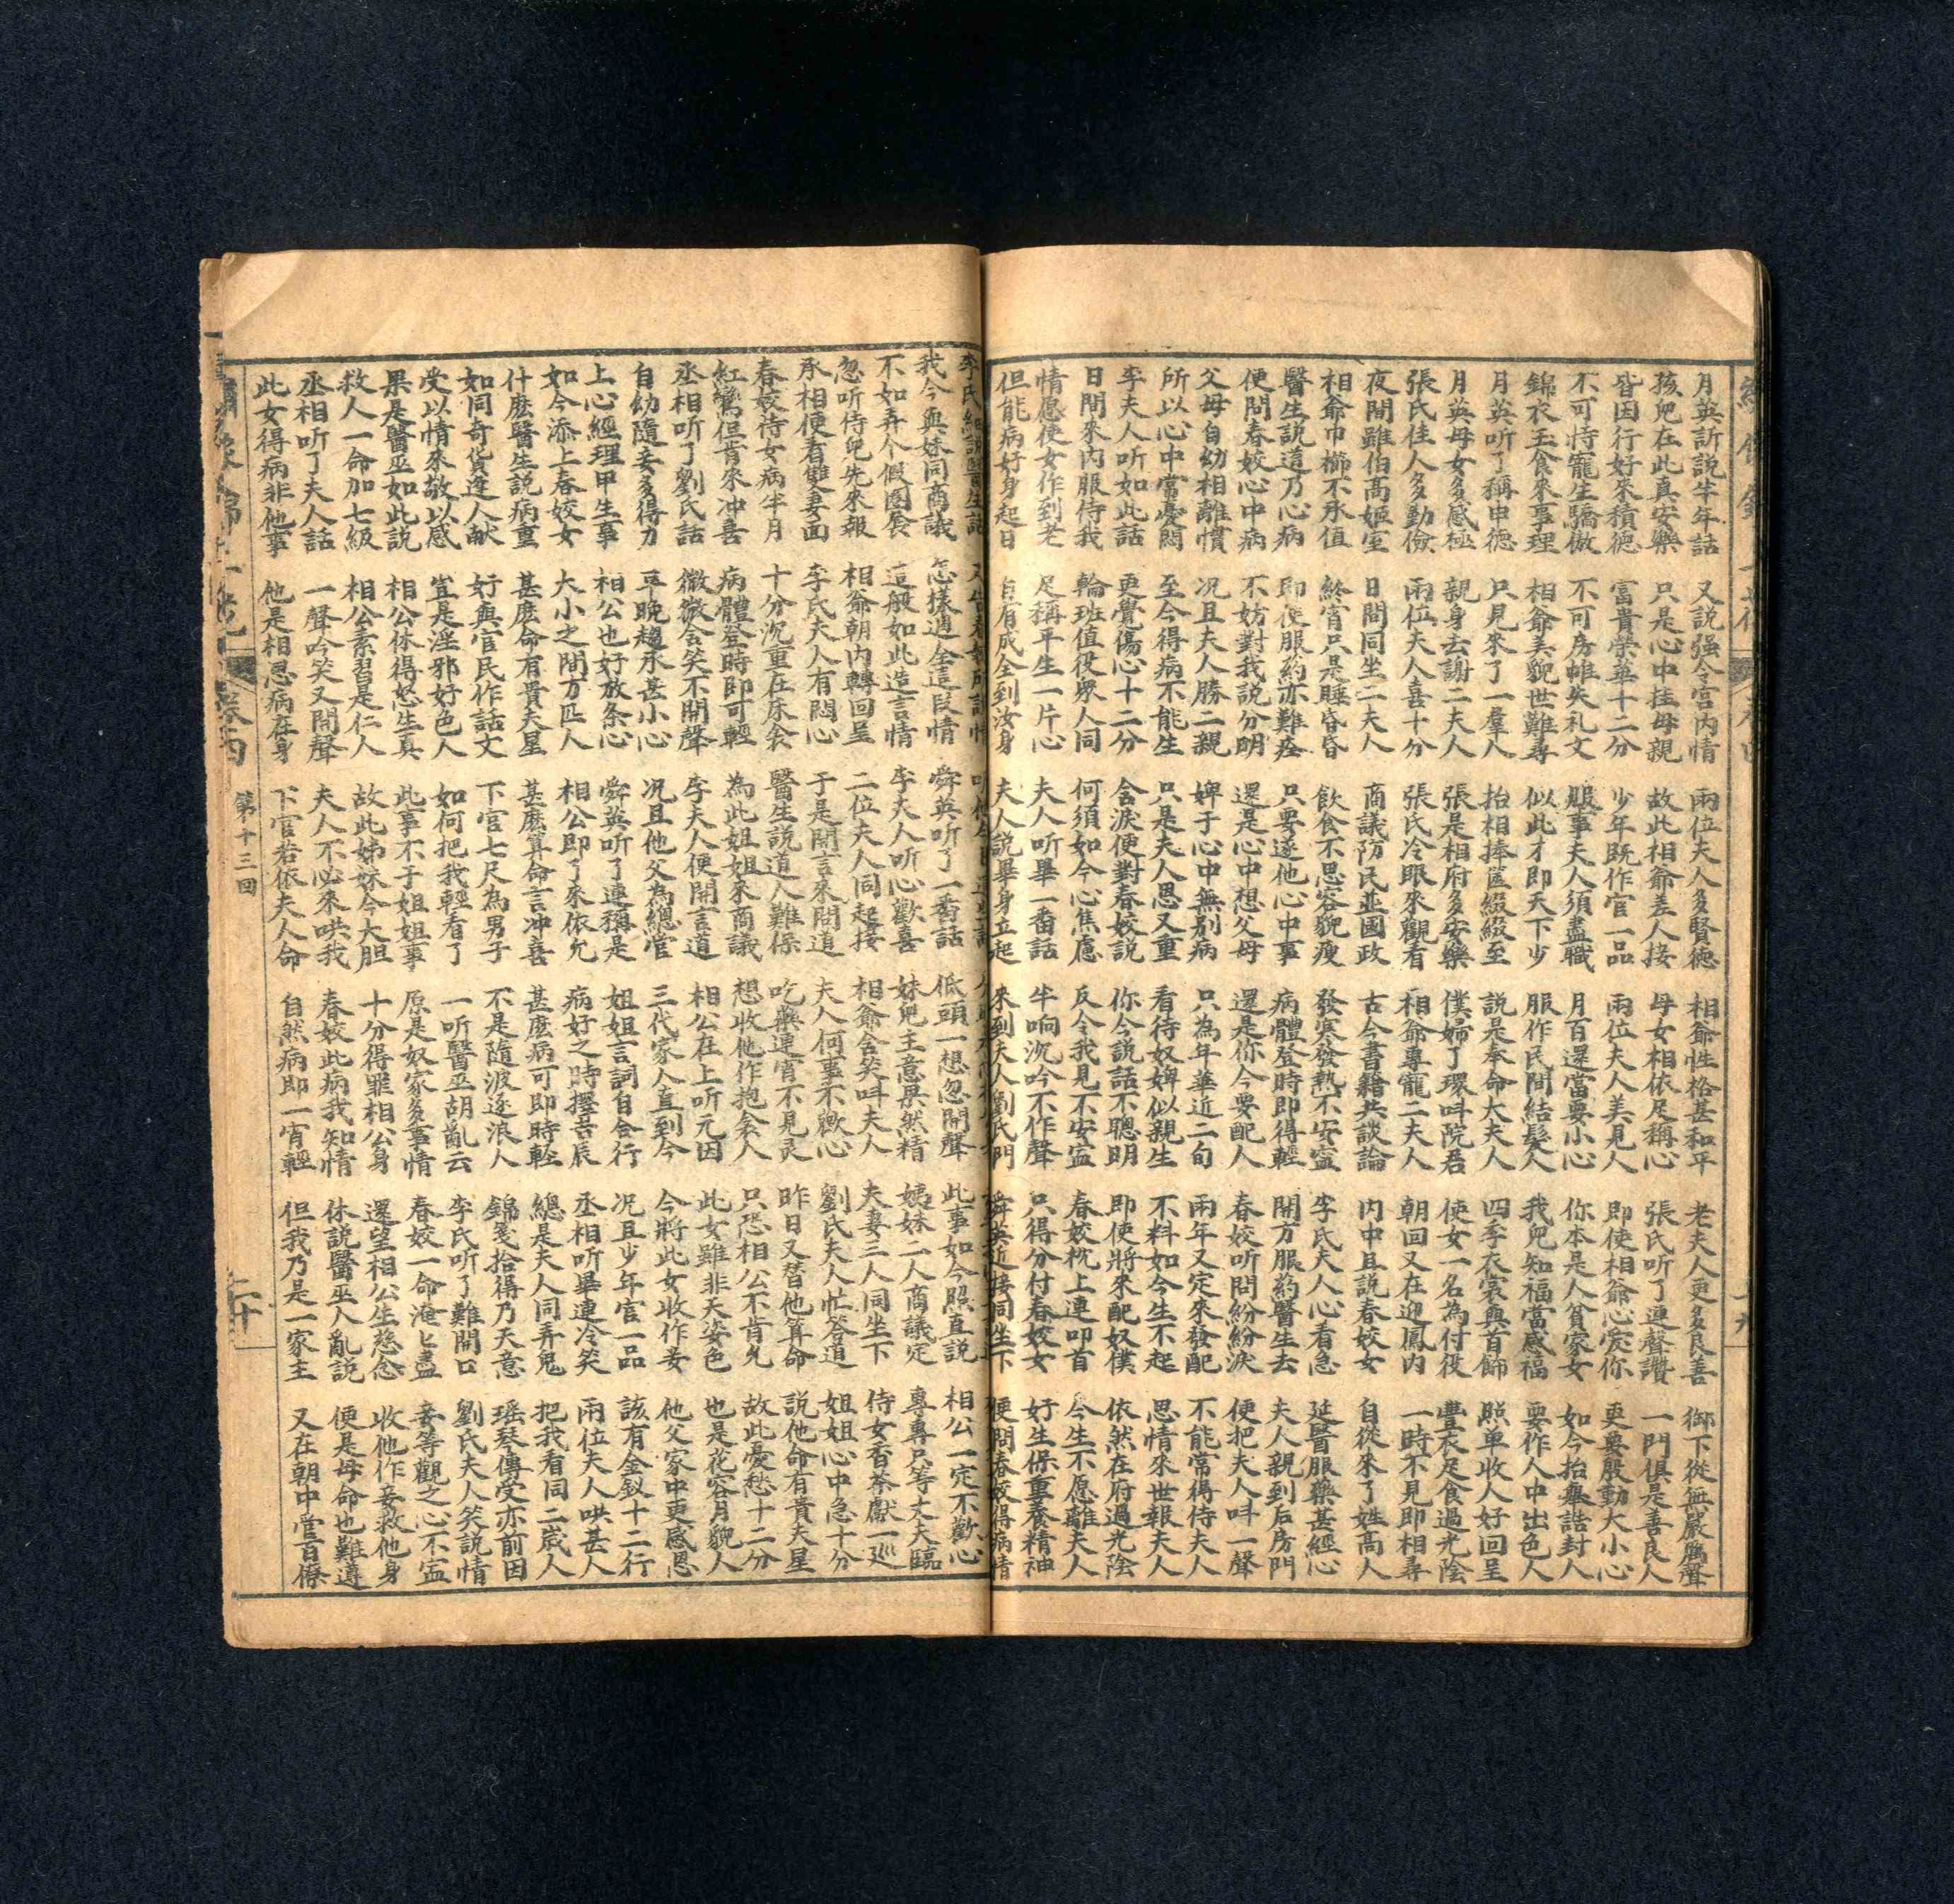 月英訴説半年話　又説强令宫内情　兩位夫人多賢德　相爺性格甚和平　老夫人更多良善　御下從無嚴厲聲
孩兒在此真安樂　只是心中挂母親　故此相爺差人接　母女相依足稱心　張氏听了連聲讚　一門俱是善良人
皆因行好來積德　富貴榮華十二分　少年既作官一品　兩位夫人美見人　即使相爺心寵你　更要殷勤大小心
不可恃寵生驕傲　不可房帷失礼文　服事夫人須盡職　月百還當要小心　你本是人貧家女　如今抬舉誥封人
錦衣玉食來事理　相爺美貌世難尋　似此才即天下少　服作民間結髮人　我兒知福當感福　要作人中出色人
月英听了稱中德　只見來了一羣人　抬相捧篋綴綴至　説是奉命大夫人　四季衣裳與首飾　照单收人好回呈
月英母女多感極　親身去謝二夫人　張是相府多安樂　僕婦丫環呌院君　使女一名為付役　豐衣足食過光陰
張氏佳人多勤儉　兩位夫人喜十分　張氏冷眼來觀看　相爺專寵二夫人　朝回又在迎鳳内　一時不見即相尋
夜間雖伯高姬室　日間同坐二夫人　商議防民並國政　古今書籍共談論　内中且説春姣女　自從來了姓高人
相爺巾櫛不承值　終宵只是睡昏昏　飲食不思容貌瘦　發寒發熱不安寍　李氏夫人心看急　延醫服藥甚經心
醫生説道乃心病　即使服葯亦難痊　只要遂他心中事　病體登時即得輕　開方服葯醫生去　夫人親到后房門
便問春姣心中病　不妨對我説分明　還是心中想父母　還是你今要配人　春姣听問紛紛淚　便把夫人呌一聲
父母自幼相離慣　况且夫人勝二親　婢子心中無别病　只為年華近二旬　兩年又定來發配　不能常得待夫人
所以心中當憂悶　至今得病不能生　只是夫人恩又重　看待奴婢似親生　不料如今生不起　思情來世報夫人
李夫人听如此話　更覺傷心十二分　含淚便對春姣説　你今説話不聰明　即使將來配奴僕　依然在府過光陰
日間來内服侍我　輪班值役眾人同　何須如今心焦慮　反令我見不安寍　春姣枕上連叩首　今生不愿離夫人
情愿使女作到老　足稱平生一片心　夫人听畢一番話　半响沉吟不作聲　只得分付春姣女　好生保重養精神
但能病好身起日　自有成全到汝身　夫人説畢身立起　來到夫人劉氏門　舜英近接同坐下　便問春姣得病情
李氏細説醫生話
我今與妹同商議　怎樣週全這段情　舜英听了一番話　低頭一想忽開聲　此事如今照直説　相公一定不歡心
不如弄个假圈套　這般如此造言情　李夫人听心歡喜　妹兒主意果然精　姨妹一人商議定　專專只等太夫臨
忽听侍兒先來報　相爺朝内轉回呈　二位夫人同起接　相爺含笑呌夫人　夫妻三人同坐下　侍女香茶獻一巡
承相便看雙妻面　李氏夫人有悶心　于是開言來問道　夫人何事不歡心　劉氏夫人忙答道　姐姐心中急十分
春姣侍女病半月　十分沉重在床衾　醫生説道人難保　吃藥連宵不見灵　昨日又替他算命　説他命有貴夫星
紅鸞但肯來冲喜　病體登時即可輕　為此姐姐來商議　想收他作抱衾人　只恐相公不肯允　故此憂愁十二分
丞相听了劉氏話　微微含笑不開聲　李夫人便開言道　相公在上听元因　此女雖非天姿色　也是花容月貌人
自幼隨妾多得力　早晚趨承甚小心　况且他父為總管　三代家人直到今　今將此女收作妾　他父家中更感恩
上心經理甲生事　相公也好放条心　舜英听了連稱是　姐姐言詞自合行　况且少年官一品　該有金釵十二行
如今添上春姣女　大小之間方匹人　相公即了來依允　病好之時擇吉辰　丞相听畢連冷笑　兩位夫人哄甚人
什麽醫生説病重　甚麽命有貴夫星　甚麽算命言冲喜　甚麽病可即時輕　總是夫人同弄鬼　把我看同二歲人
如同奇貨逢人献　好與官民作話文　下官七尺為男子　不是隨波逐浪人　錦箋拾得乃天意　瑶琴傳受亦前因
受以情來敬以感　豈是淫邪好色人　如何把我輕看了　一听醫巫胡亂云　李氏听了難開口　劉氏夫人笑説情
果是醫巫如此説　相公休得怒生真　此事不于姐姐事　原是奴家多事情　春姣一命淹匕盡　妾等觀之心不寍
救人一命加七級　相公素習是仁人　故此姊妹今大胆　十分得罪相公身　還望相公生慈念　收他作妾救他身
丞相听了夫人話　一聲吟笑又開聲　夫人不必來哄我　春姣此病我知情　休説醫巫人亂説　便是母命也難遵
此女得病非他事　他是相思病在身　下官若依夫人命　自然病即一宵輕　但我乃是一家主　又在朝中管百僚
卷四
第十三回
二十